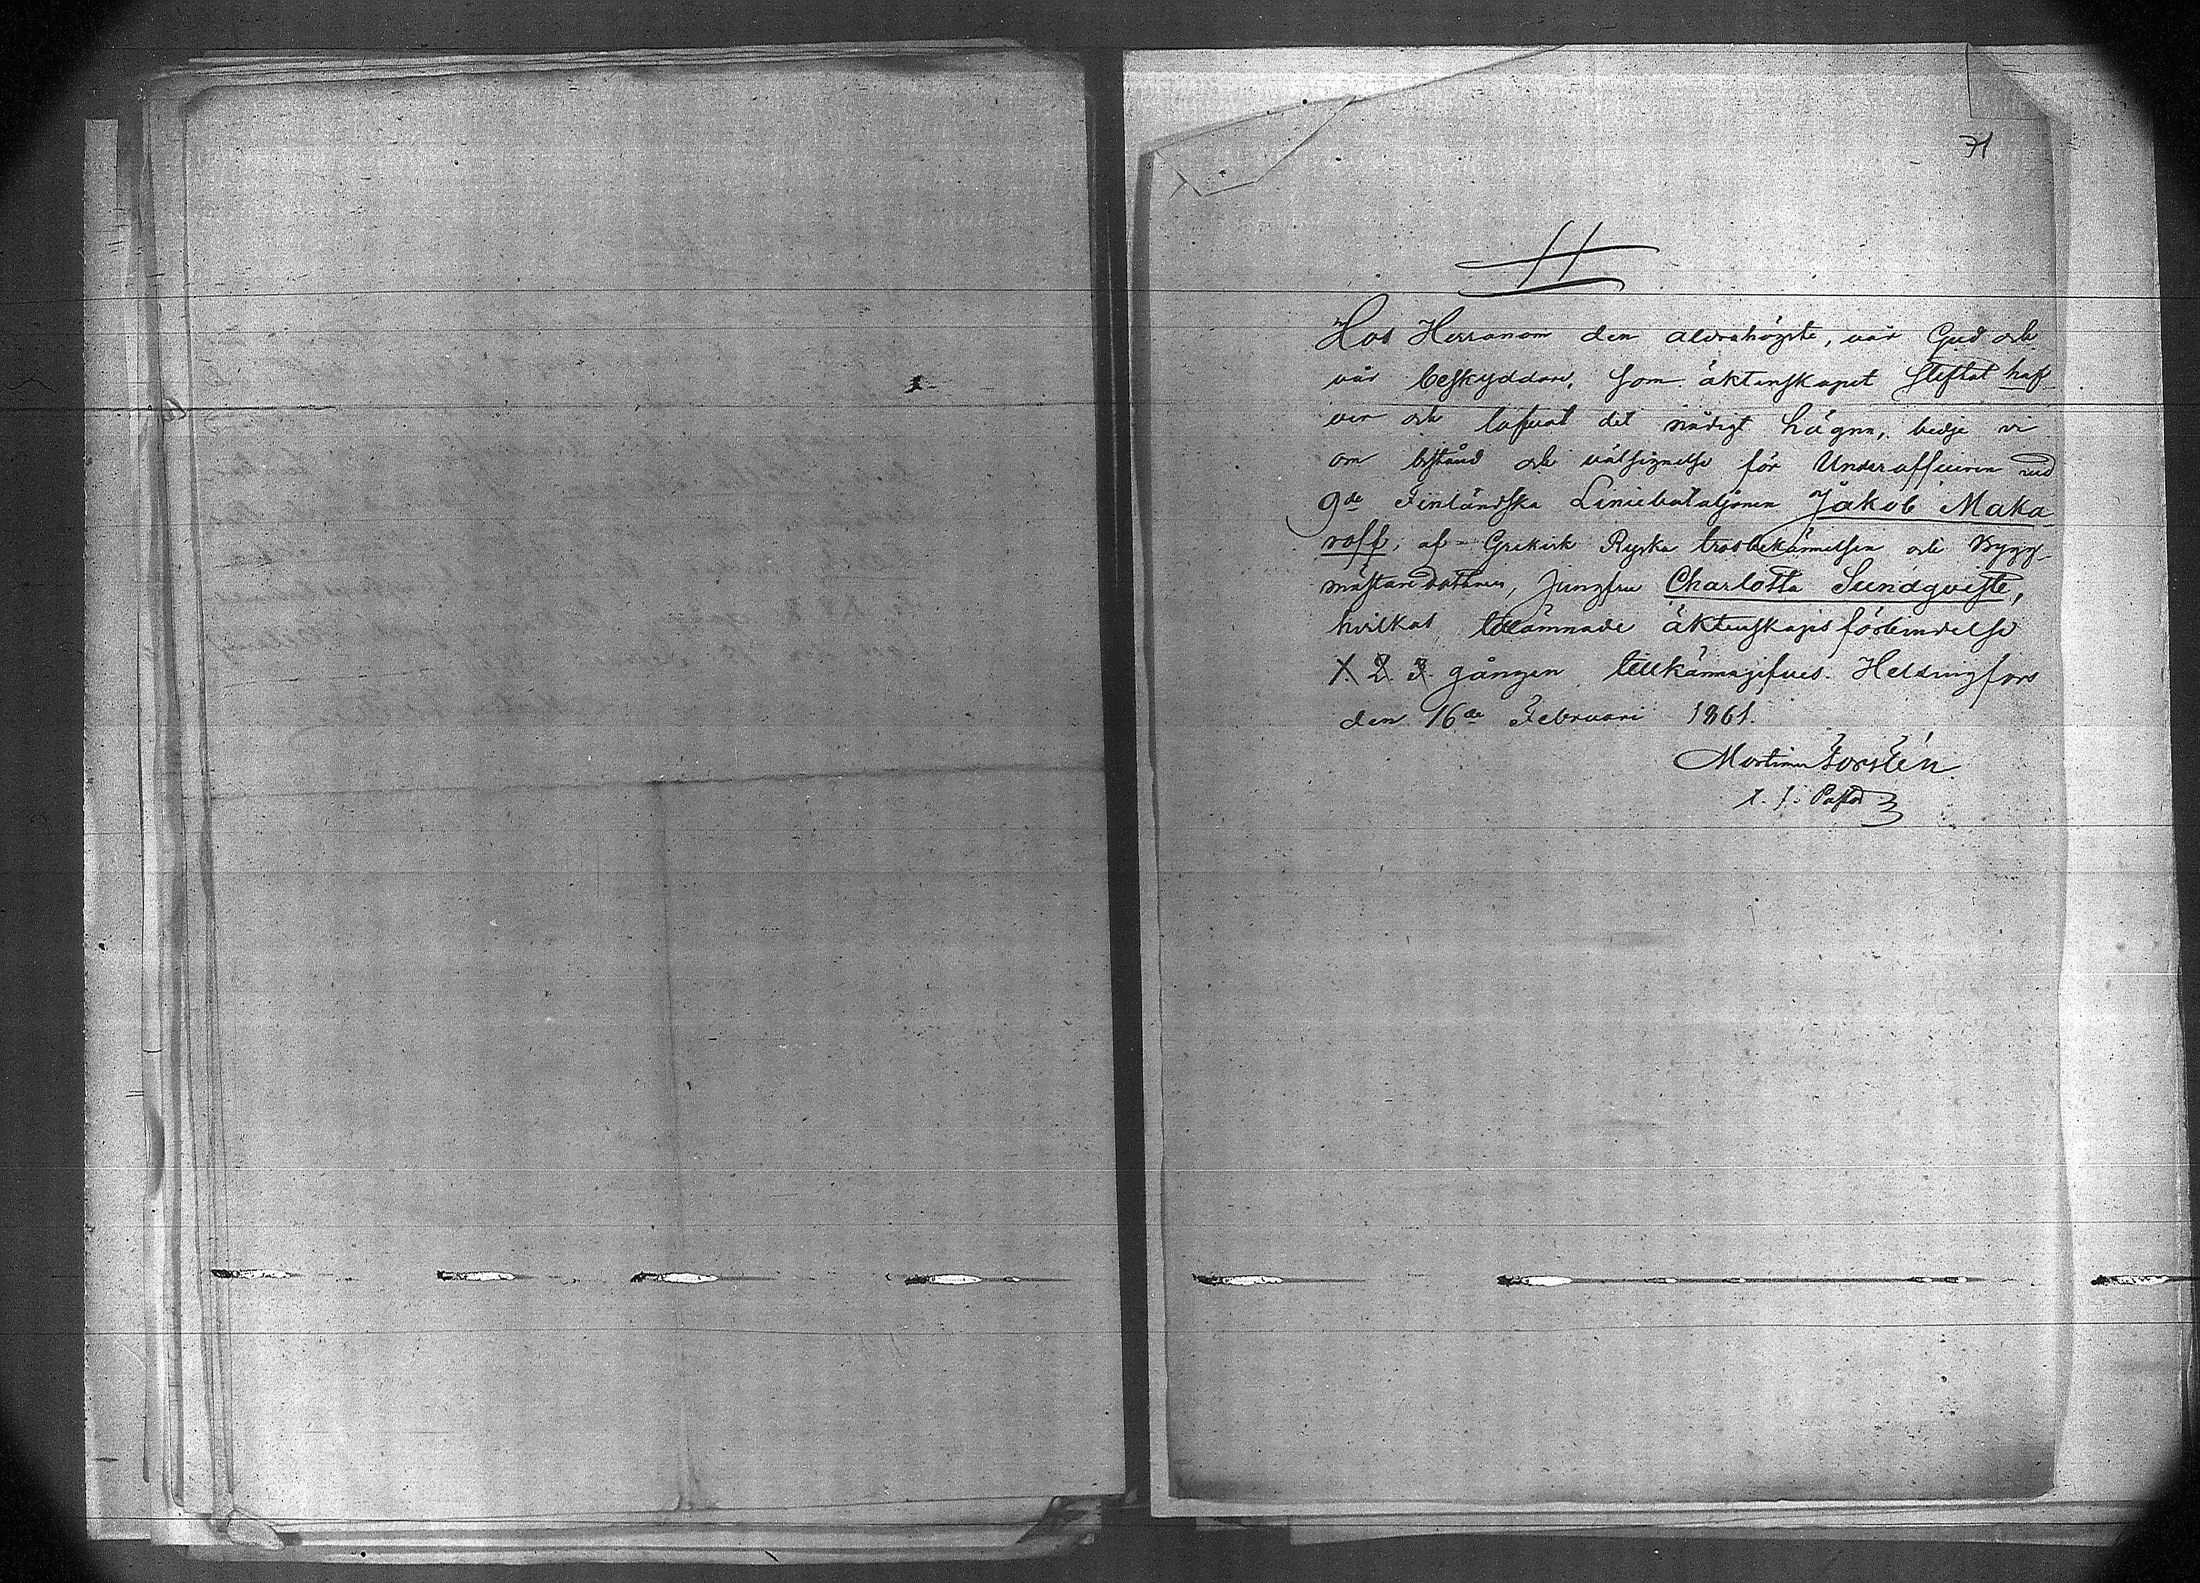 71
Hos Herranom den aldrahögste, vår Gud och
vår beskyddare, som äktenskapet stiftat haf-
ver och lofvat det nådigt hägna, bedje vi
om bistånd och välsignelse för Underofficeren vid
9de Finländska Liniebataljonen Jakob Maka-
roff, af Grekisk Ryska trosbekännelsen och Bygg-
mästaredottren, Jungfru Charlotta Sundqviste,
hvilkas tillämnade äktenskapsförbindelse
1. 2. 3. gången tillkännagifves. Helsingfors
den 16de Februari 1861.
Mortimer Forstén
t. f. Pastor